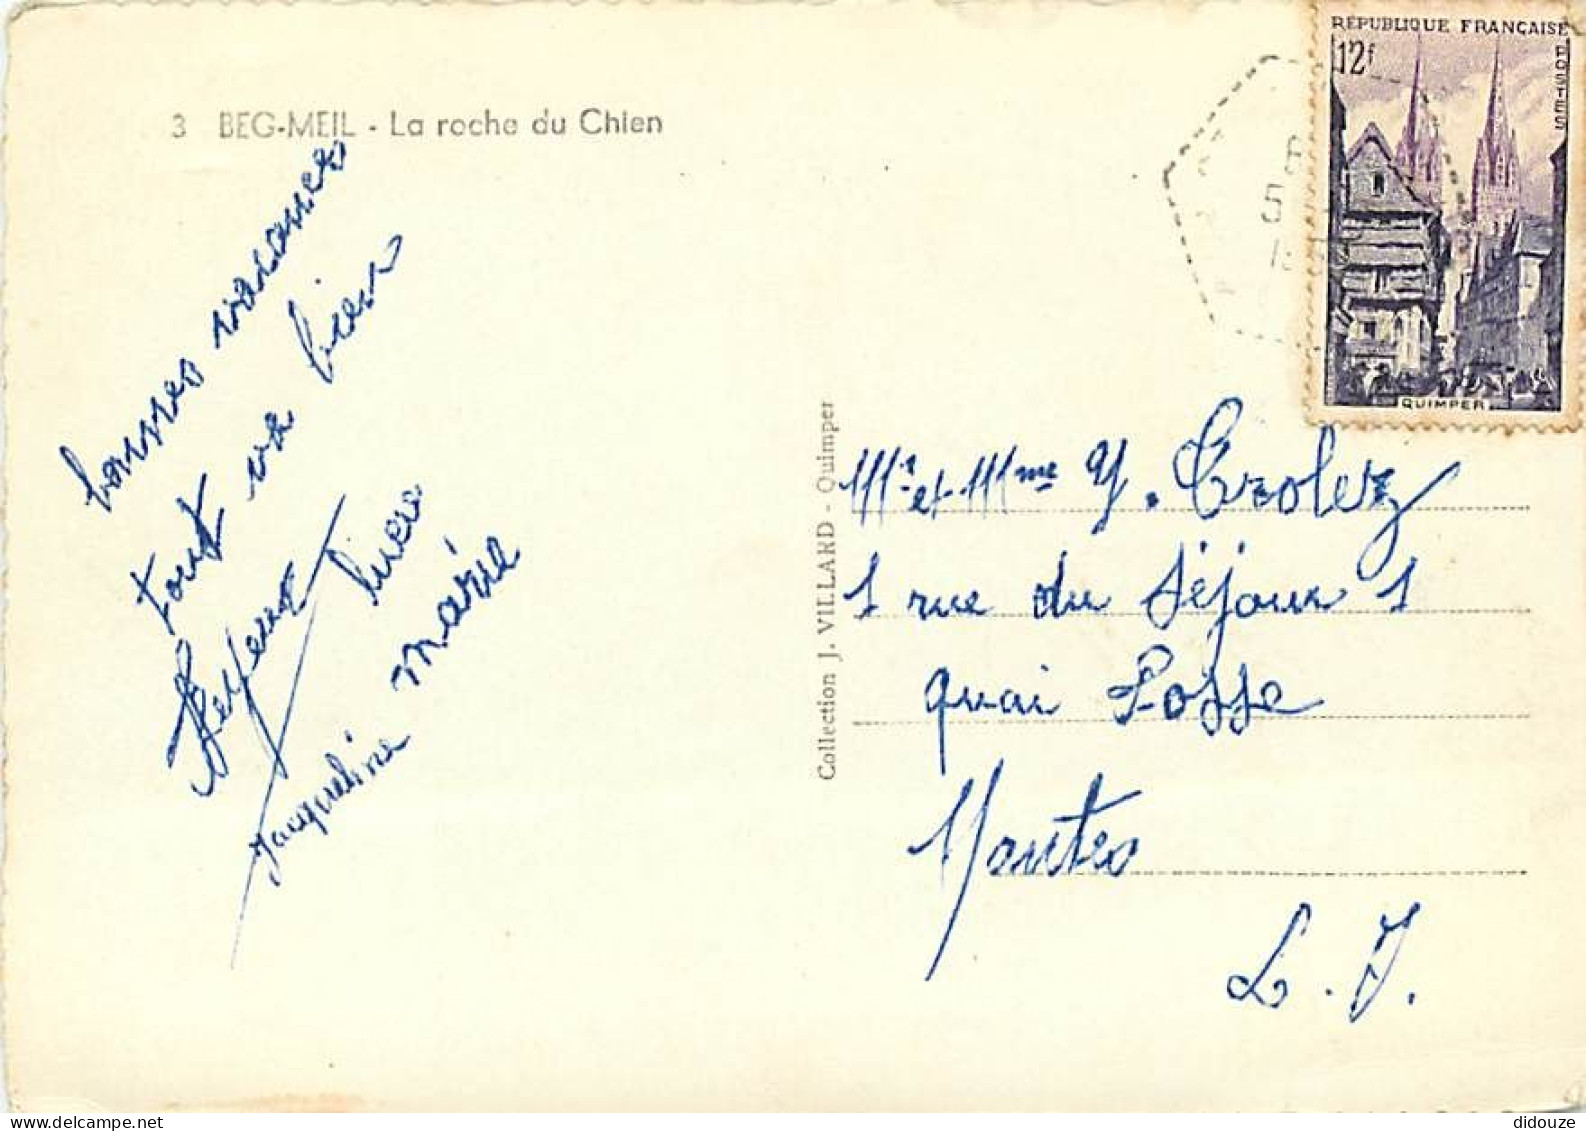 3 BEG-MEIL - La roche du Chien
RÉPUBLIQUE FRANÇAISE
12f
POSTES
QUIMPER
bonnes vacances
tout va bien
Jacqueline marie
Collection J. VILLARD - Quimper
Mr et Mme Y. Crolez
1 rue du Séjour 1
quai Fosse
Nantes
L. I.
didouze